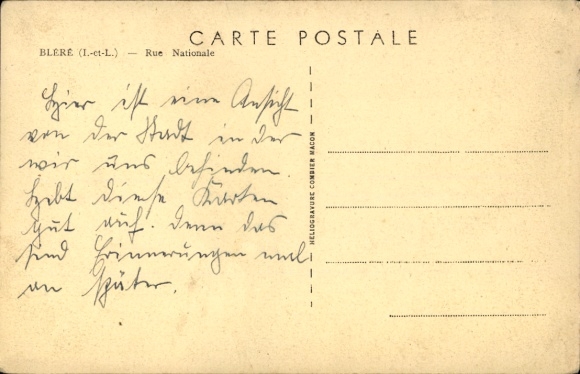 CARTE POSTALE
BLÉRÉ (I.-et-L.) — Rue Nationale
Hier ist eine Ansicht
von der Stadt in der
wir uns befinden.
Hebt diese Karten
gut auf. denn das
sind Erinnerungen mal
an später.
HELIOGRAVURE COMBIER MACON